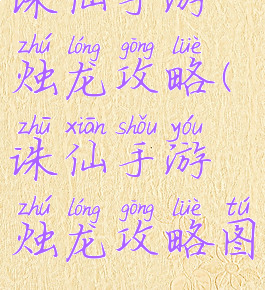 诛仙手游
zhú lóng gōng lüè
烛龙攻略(
zhū xiān shǒu yóu
诛仙手游
zhú lóng gōng lüè tú
烛龙攻略图